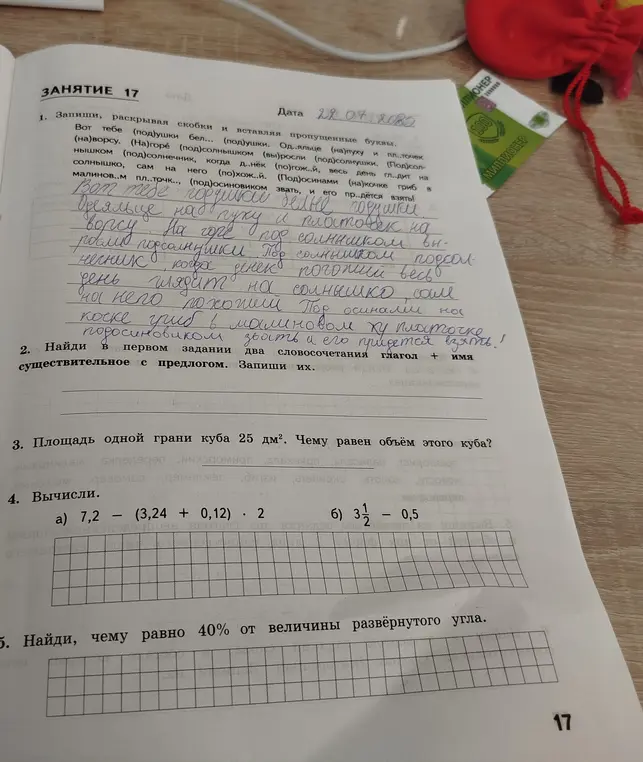 ЗАНЯТИЕ 17
Дата 22 07
1. Запиши, раскрывая скобки и вставляя пропущенные буквы.
Вот тебе (под)ушки бел... (под)ушки. Од..яльце (на)пуху и пл..точек
(на)ворсу. (На)горé (под)солнышком (вы)росли (под)солнушки. (Под)сол-
нышком (под)солнечник, когда д..нёк (по)гож..й, весь день гл..дит на
солнышко, сам на него (по)хож..й. (Под)осинами (на)кочке гриб в
малинов..м пл..точк.., (под)осиновиком звать, и его пр..дётся взять!
Вот тебе подушки белые подушки.
на пуху и платочек на
ворсу. На горе под солнышком вы-
росли подсолнушки. Под солнышком подсол-
нечник, когда денёк погожий весь
день глядит на солнышко, сам
на него похожий Под осинами на
кочке гриб в малиновом платочке
подосиновиком звать и его придётся взять!
2. Найди в первом задании два словосочетания глагол + имя
существительное с предлогом. Запиши их.
3. Площадь одной грани куба 25 дм². Чему равен объём этого куба?
4. Вычисли.
а) 7,2 − (3,24 + 0,12) · 2 б) 3 1/2 − 0,5
5. Найди, чему равно 40% от величины развёрнутого угла.
17